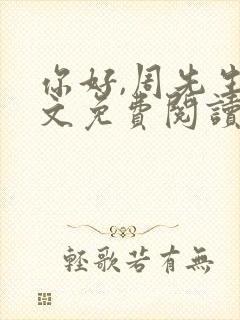 你好,周先生
文免费閱讀
輕歌若有無